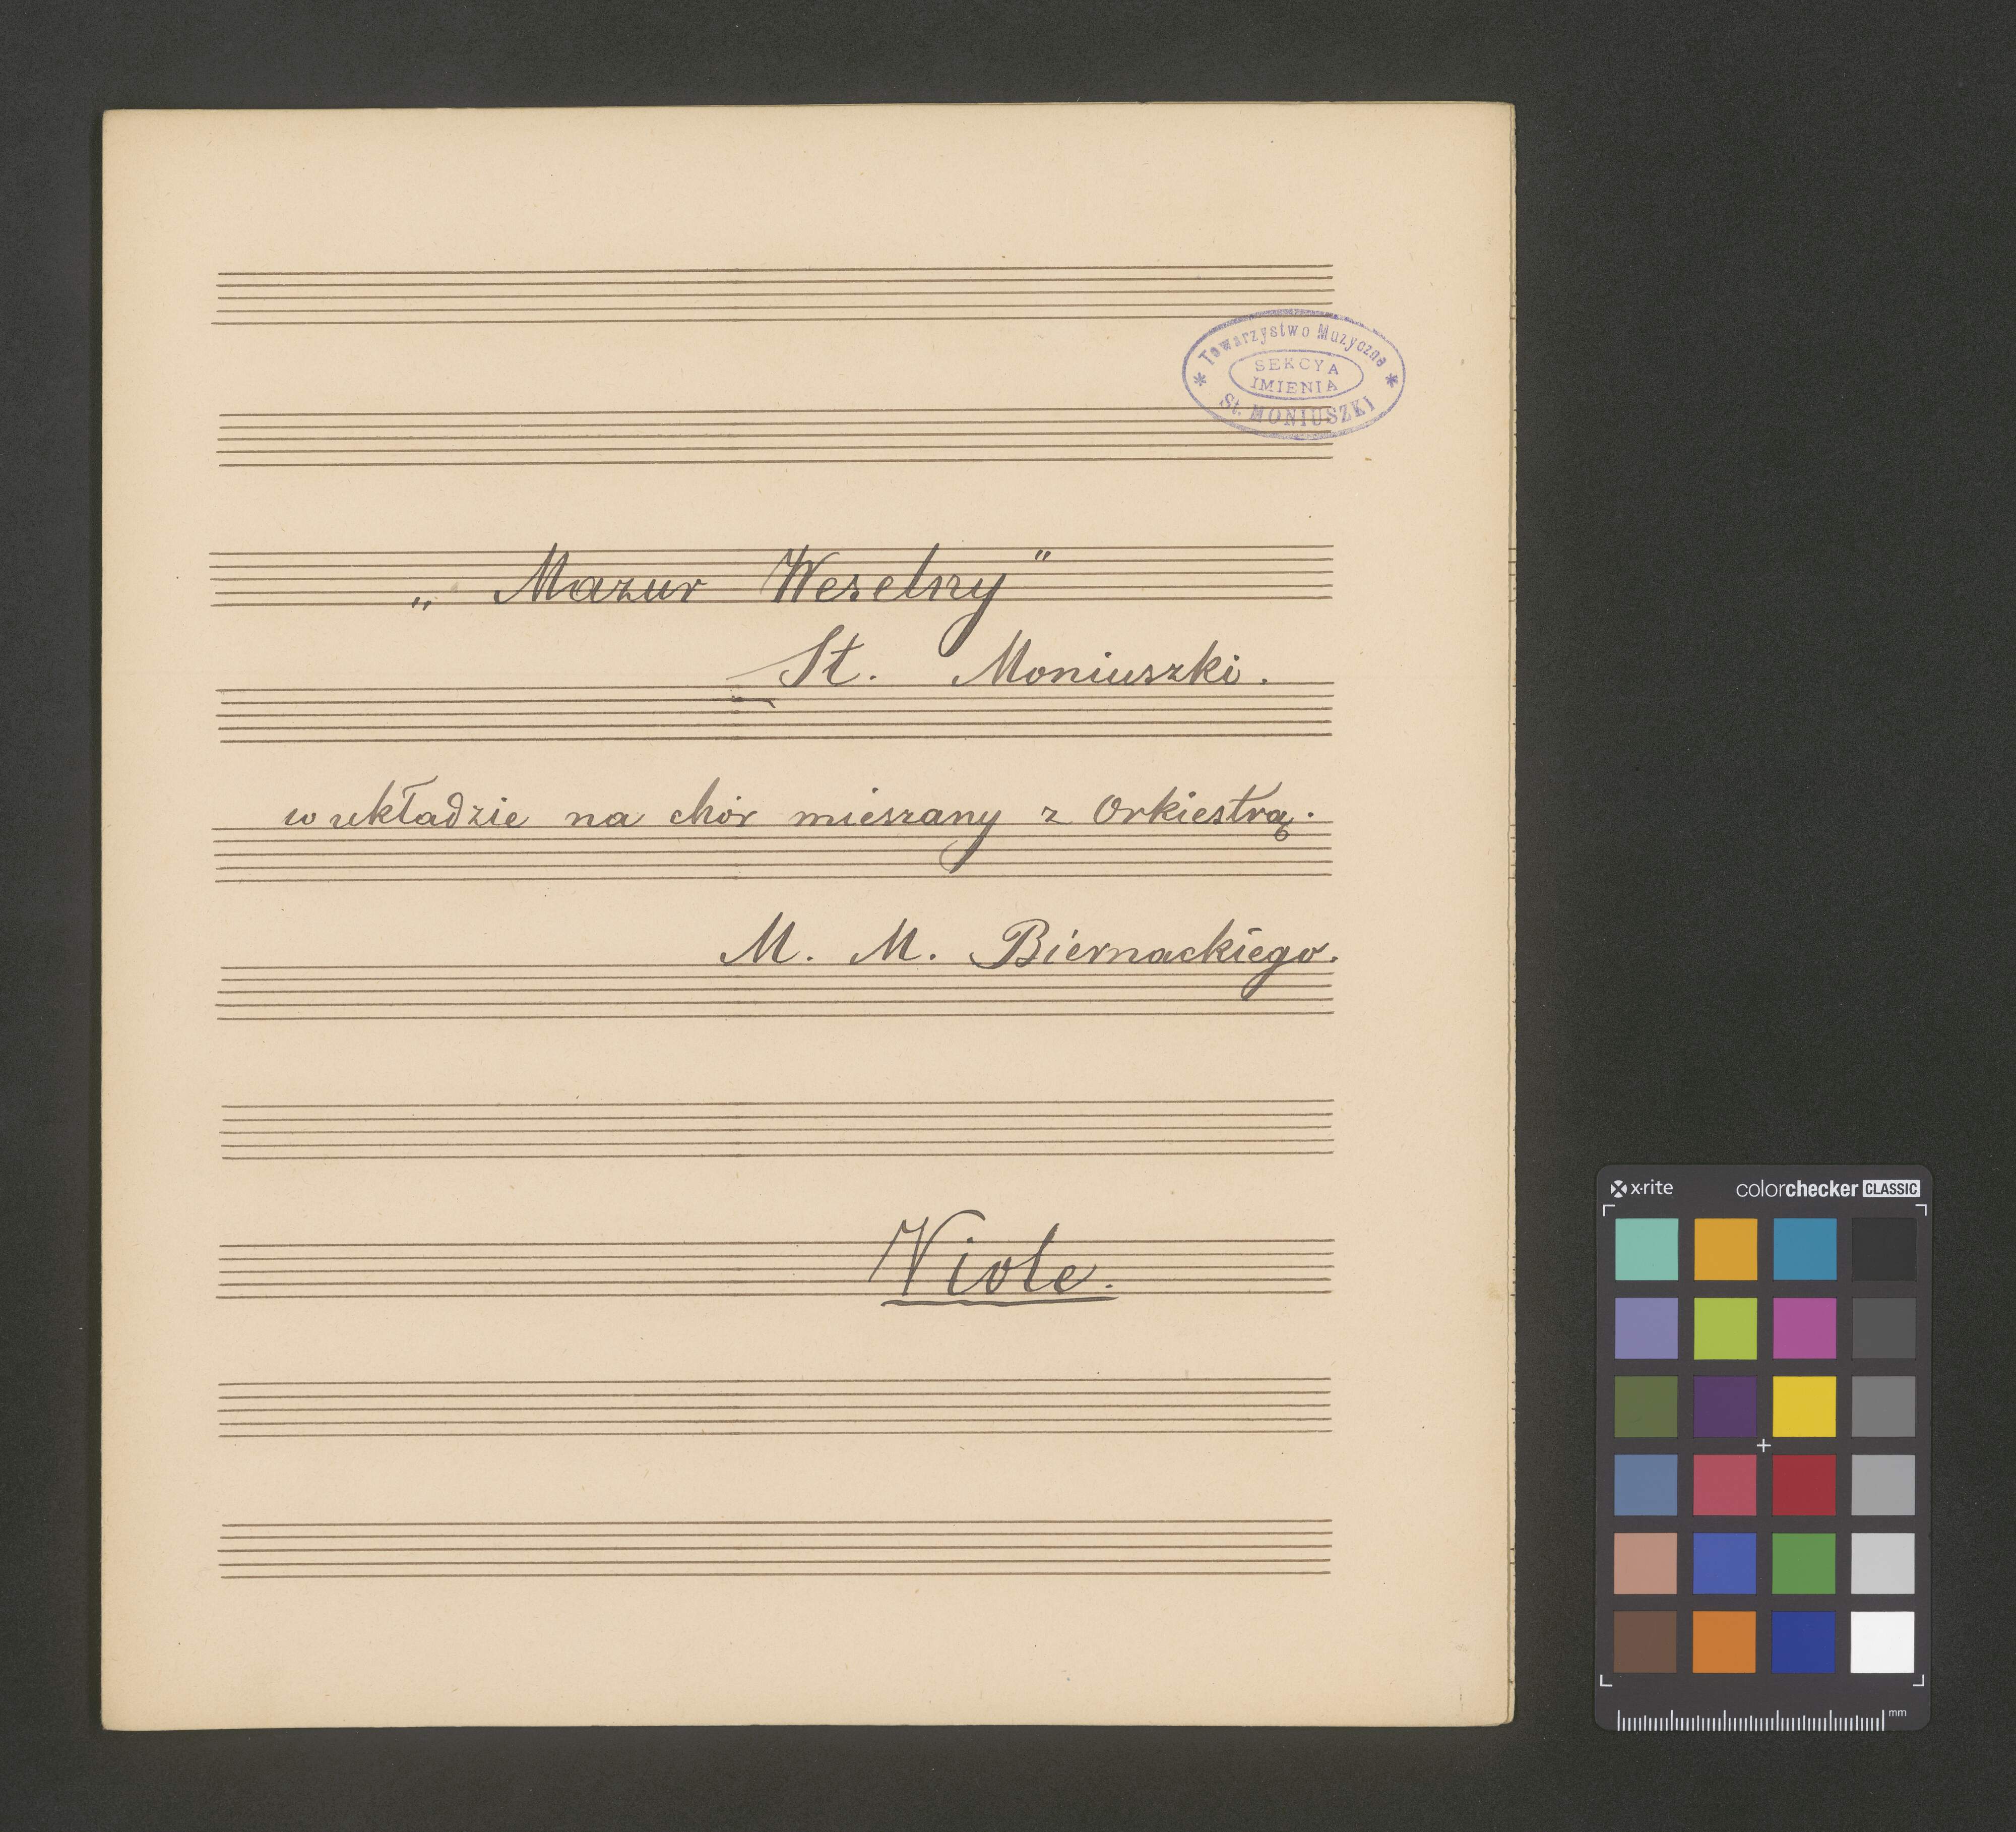 Towarzystwo Muzyczne
SEKCYA
IMIENIA
St. MONIUSZKI
„ Mazur Weselny "
St. Moniuszki.
w układzie na chór mieszany z Orkiestrą.
M. M. Biernackiego.
Viole.
x·rite colorchecker CLASSIC
mm